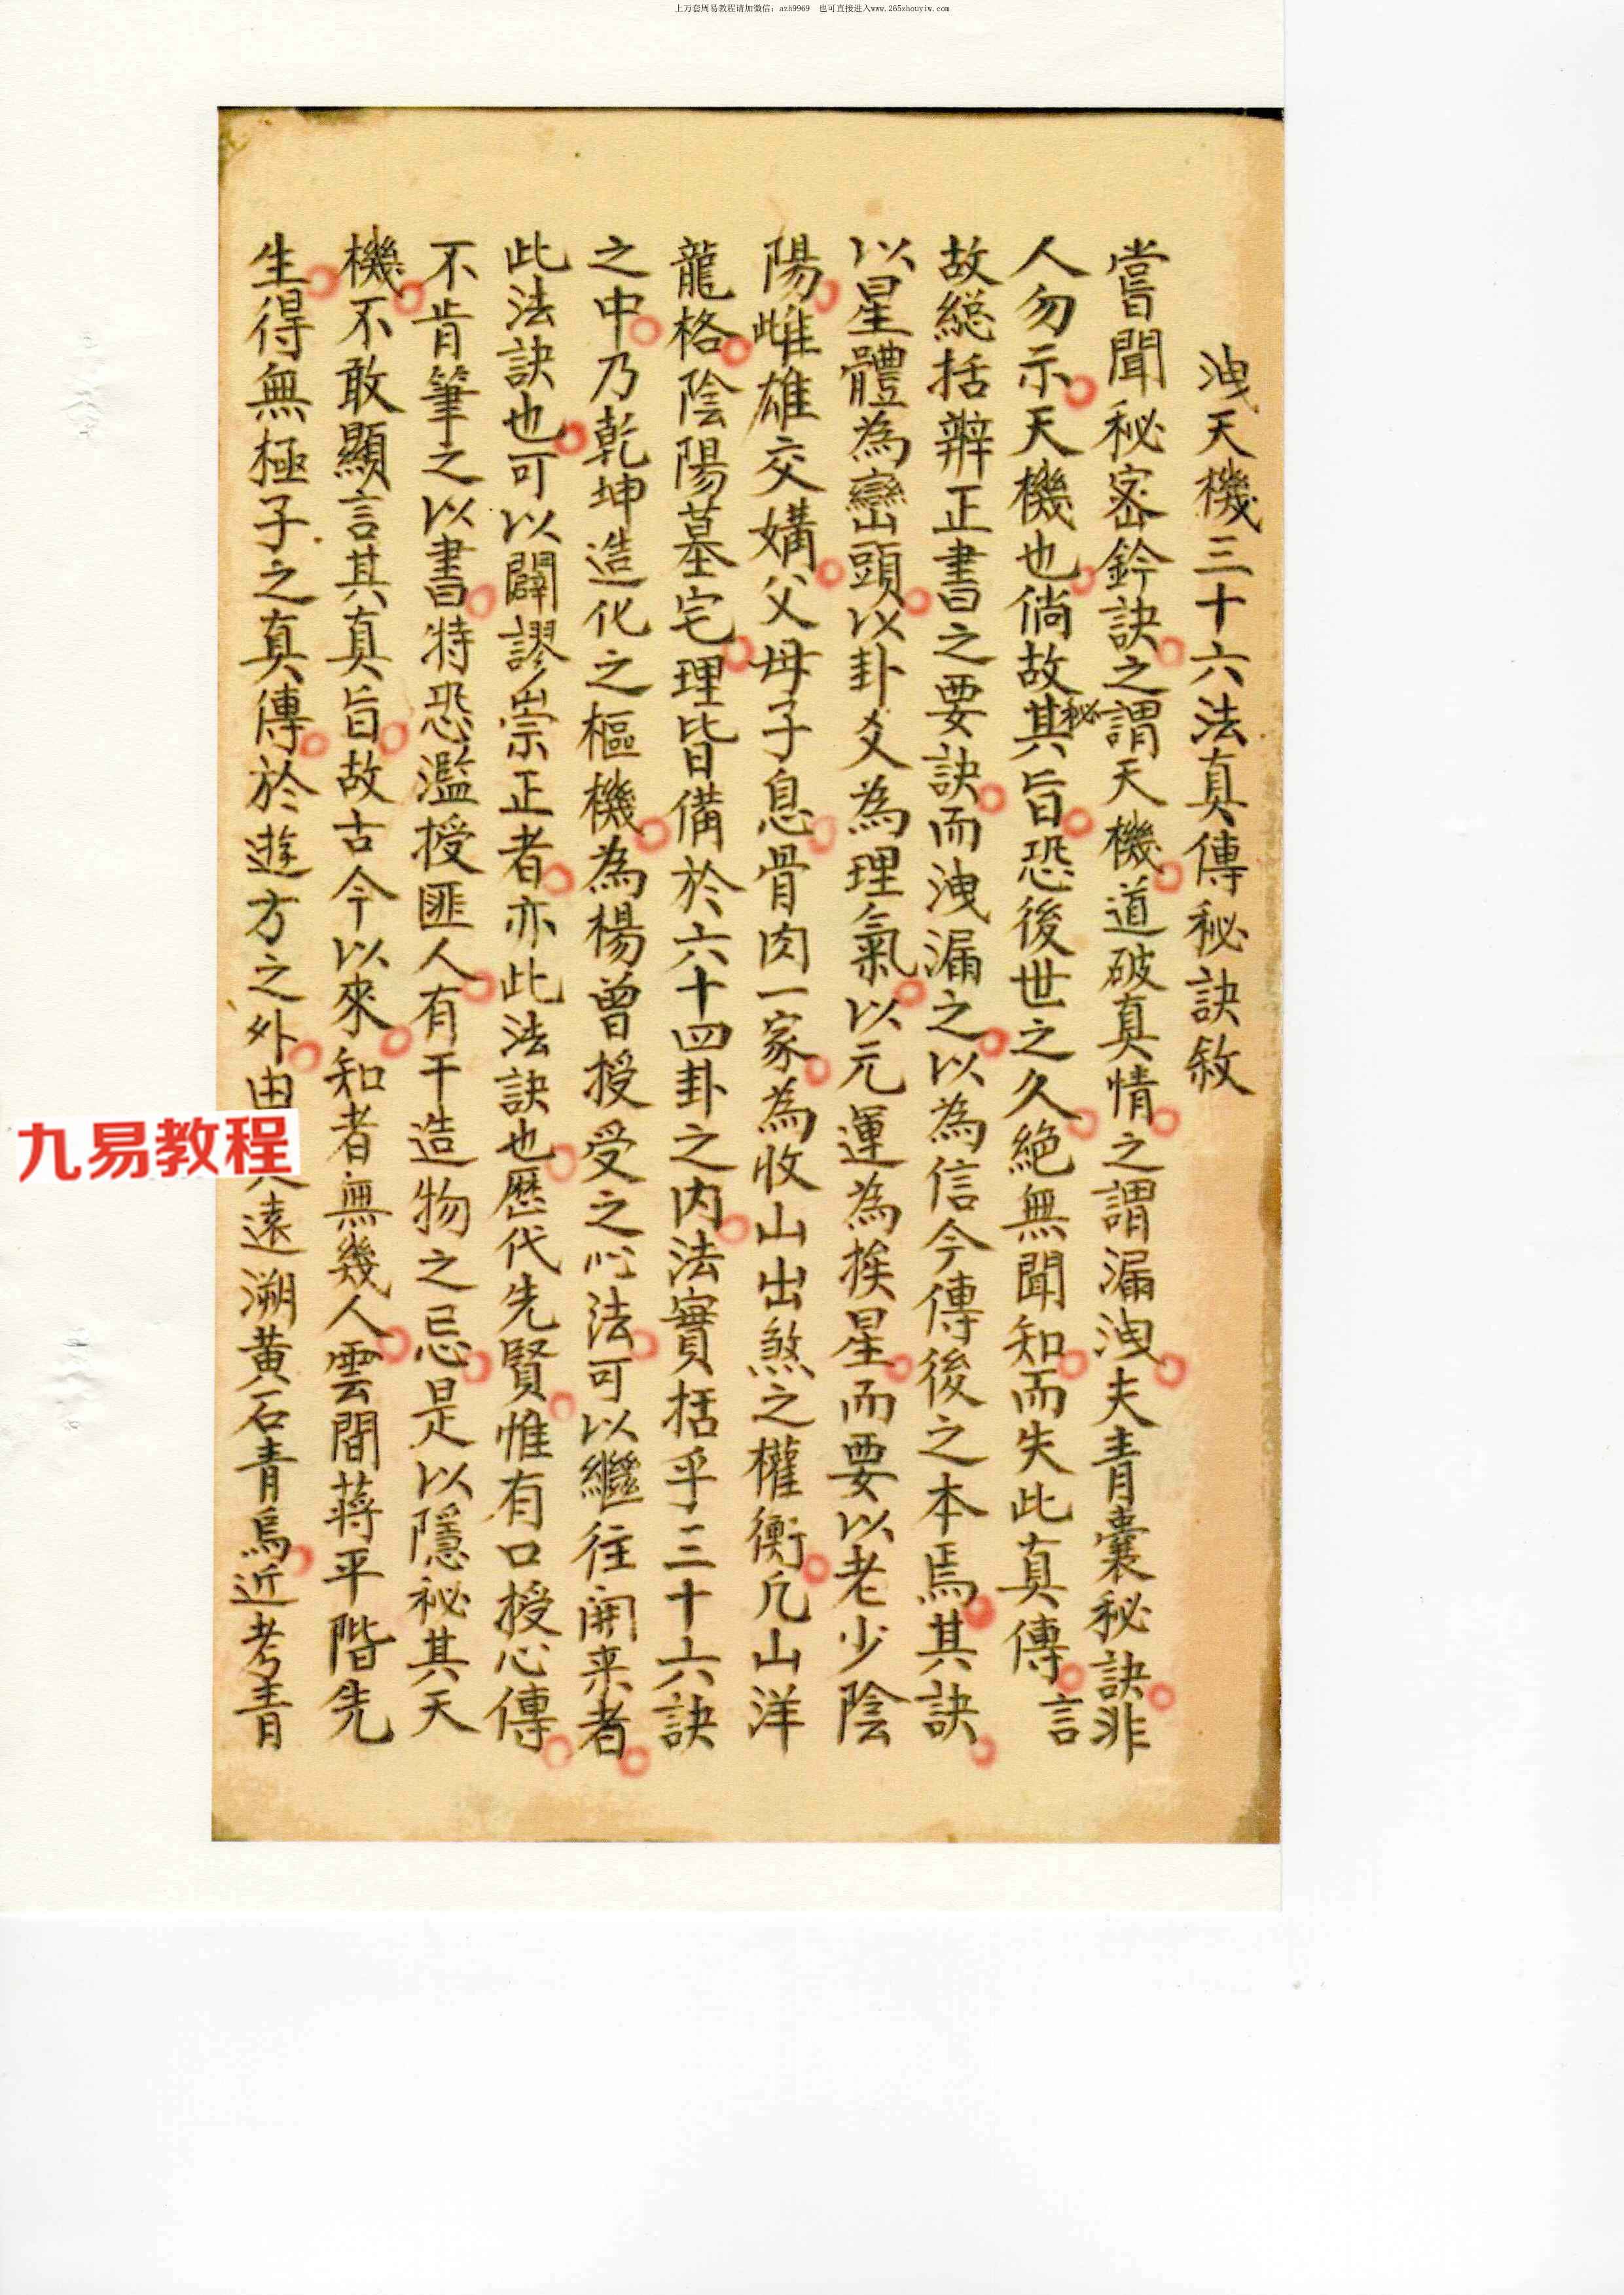 上万套周易教程请加微信：azh9969 也可直接进入www.265zhouyiw.com
洩天機三十六法真傳秘訣敘
嘗聞秘密鈐訣之謂天機道破真情之謂漏洩夫青囊秘訣非
人勿示天機也倘故其秘旨恐後世之久絕無聞知而失此真傳言
故総括辨正書之要訣而洩漏之以為信今傳後之本焉其訣
以星體為巒頭以卦爻為理氣以元運為挨星而要以老少陰
陽雌雄交媾父母子息骨肉一家為收山出煞之權衡凢山洋
龍格陰陽墓宅理皆備於六十四卦之内法實括乎三十六訣
之中乃乾坤造化之樞機為楊曾授受之心法可以繼往開来者
此法訣也可以闢謬崇正者亦此法訣也歷代先賢惟有口授心傳
不肯筆之以書特恐濫授匪人有干造物之忌是以隱秘其天
機不敢顯言其真旨故古今以來知者無幾人雲間蒋平階先
生得無極子之真傳於遊方之外由遠溯黄石青烏近考青
九易教程